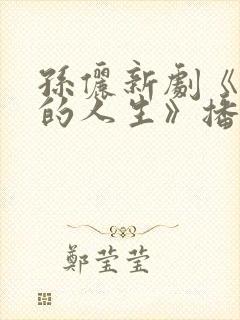 孫儷新劇《
的人生》播
鄭莹莹